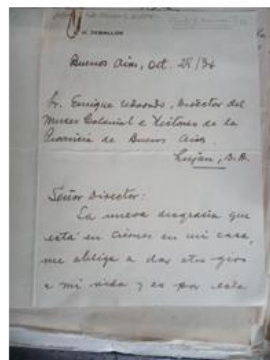 H. ZEBALLOS
Buenos Aires, Oct. 25/34
Sr. Enrique Udaondo, Director del
Museo Colonial e Histórico de la
Provincia de Buenos Aires
Luján, B.A.
Señor Director:
La nueva desgracia que
está en ciernes en mi casa,
me obliga a dar otro giro
a mi vida y es por esta